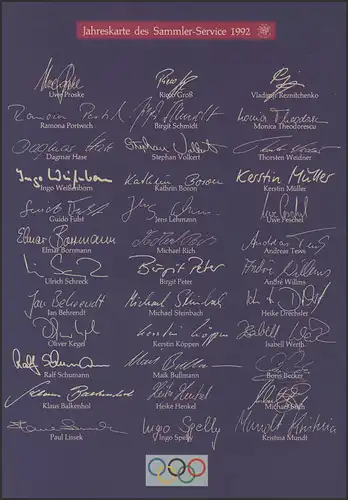 Jahreskarte des Sammler-Service 1992
Uwe Proske Rico Groß Vladimir Reznitchenko
Ramona Portwich Birgit Schmidt Monica Theodorescu
Dagmar Hase Stephan Volkert Thorsten Weidner
Ingo Weißenborn Kathrin Boron Kerstin Müller
Guido Fulst Jens Lehmann Uwe Peschel
Elmar Borrmann Michael Rich Andreas Tews
Ulrich Schreck Birgit Peter André Willms
Jan Behrendt Michael Steinbach Heike Drechsler
Oliver Kegel Kerstin Köppen Isabell Werth
Ralf Schumann Maik Bullmann Boris Becker
Klaus Balkenhol Heike Henkel Michael Stich
Paul Lissek Ingo Spelly Kristina Mundt